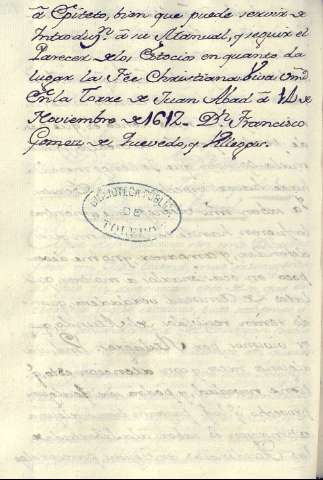 à Epiteto, bien que puede servir de
Introduzn. à su Manual, y seguir el
Parecer de los Estoicos en quanto da
lugar la Fée Christiana. Viva Vmd.
En la Torre de Juan Abad à 14 de
Noviembre de 1612. Dn. Francisco
Gomez de Quevedo, y Villegas.
BIBLIOTECA PÚBLICA
DE
TOLEDO